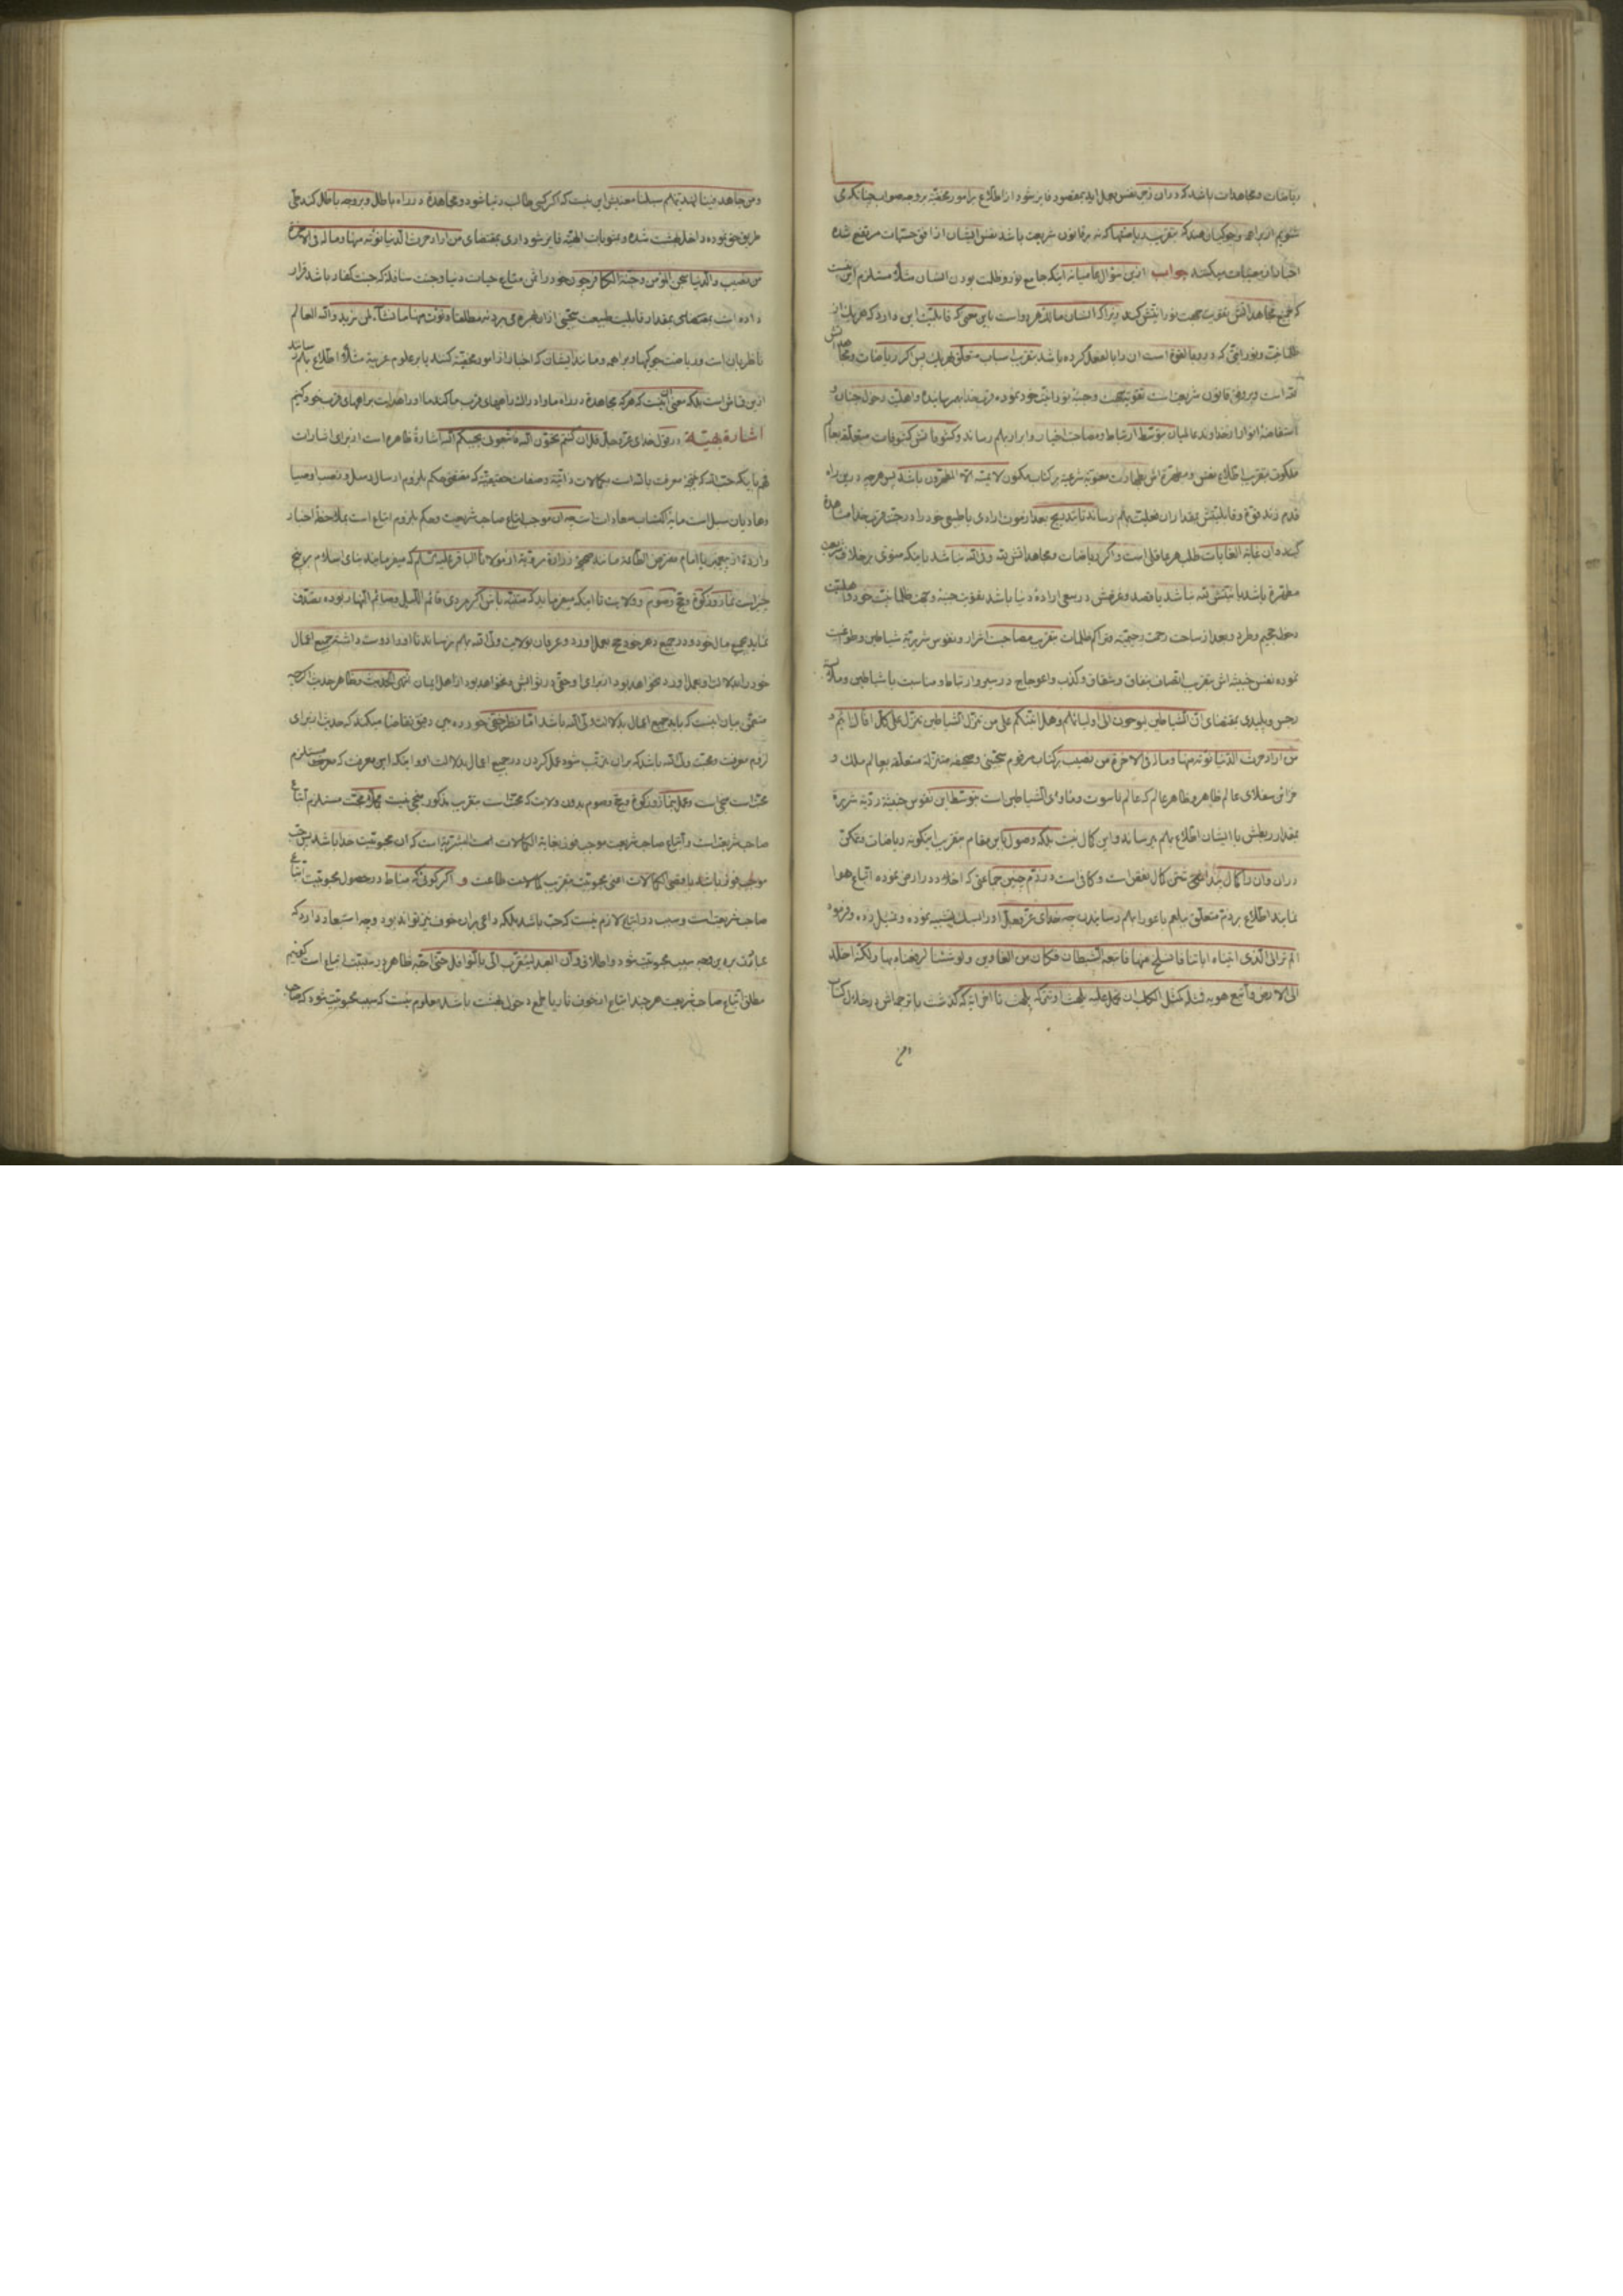 ریاضات و مجاهدات باشد که دران زمن نفس بعمل اید بمقصود فایز شود از اطلاع بر امور مخفیه بر وجه صواب چنانکه می
شنویم از براهمه و جوکیان هند که بتقریب ریاضتها که نه بر قانون شریعت باشد نفس ایشان از افق جسمیات مرتفع شده
اخبار از مغیبات میکنند جواب ازین سؤال عامیانه اینکه جامع نور و ظلمت بودن انسان مثلا مستلزم این نیست
که جمیع مجاهداتش تقویت جهت نورانیتش کند زیرا که انسان مالذ هر دو است باین معنی که قابلیت این دارد که هر یک از
ظلمانیت و نورانیتی که درو بالقوة است ان را بالفعل کرده باشد بتقریب اسباب متعلق بهر یک پس اگر ریاضات و مجاهداتش
لله است و بر وفق قانون شریعت است تقویت جهت وجنبه نورانیت خود نموده قرب خدا بهم رسانیده و اهلیت دخول جنان و
استفاضه انوار از خداوند عالمیان بتوسط ارتباط و مصاحبت اخیار و ابرار بهم رساند و کشوفاتش کشوفات متعلقه بعالم
ملکوت بتقریب اطلاع نفس و مطهره اش بطهارت معنویه شرعیه بر کتاب مکنون لا یمسه الا المطهرون باشد پس هر چه درین راه
قدم زند قوة و قابلیتش بمقدار ان فعلیت بهم رساند تا بتدریج بعد از موت ارادی یا طبیعی خود را در جنت قرب خدا مشاهدة
کند و ان غایة الغایات طلب هر عاقل است و اگر ریاضات و مجاهداتش لله و فی الله نباشد باینکه سوی بر خلاف شریعت
مطهرة باشد یا نیتش لله نباشد یا قصد و غرضش در سعی ارادهٔ دنیا باشد تقویت جنبه وجهت ظلمانیت خود و اهلیت
دخول جحیم و طرد و بعد از ساحت رحمت رحیمیه و تراکم ظلمات بتقریب مصاحبت اشرار و نفوس شریرة شیاطین و طواغیت
نموده نفس خبیثه اش بتقریب اتصاف بنفاق و شقاق و کذب و اعوجاج در سیر و ارتباط و مناسبت با شیاطین و ملابسة
رجس و پلیدی بمقتضای ان الشیاطین لیوحون الی اولیائهم و هل انبئکم علی من تنزل الشیاطین تنزل علی کل افاک اثیم و
من اراد حرث الدنیا نؤته منها و ماله فی الاخرة من نصیب بر کتاب مرقوم سجینی و صحیفه منزله متعلقه بعالم ملک و
خزائن سفلای عالم ظاهر و ظاهر عالم که عالم ناسوت و ماوای الشیاطین است بتوسط این نفوس خبیثه ردیه شریرة
بمقدار ربطش با ایشان اطلاع بهم میرساند و این کمال نیست بلکه وصول باین مقام بتقریب اینگونه ریاضات و تمکن
دران و ان را کمال پنداشتن کمال نقص است و کافی است در ذم چنین جماعتی که اخلاد در ارض نموده اتباع هوا
نمایند اطلاع بر ذم متعلق ببلعم باعورا بهم رسانیدن چه خدای عز و جل او را بسگ تشبیه نموده و مثل زده و فرمود
الم تر الی الذی اتیناه ایاتنا فانسلخ منها فاتبعه الشیطان فکان من الغاوین و لو شئنا لرفعناه بها ولکنه اخلد
الی الارض و اتبع هویه فمثله کمثل الکلب ان تحمل علیه یلهث او تترکه یلهث تا اخر ایه که گذشت با ترجمه اش در خلال کتاب
و من جاهد فینا لنهدینهم سبلنا معنیش این نیست که اگر کسی طالب دنیا شود و مجاهدة در راه باطل و بر وجه باطل کند علی
طریق حق بوده داخل بهشت شده و بمثوبات الهیه فایز شود اری بمقتضای من اراد حرث الدنیا نؤته منها و ماله فی الاخرة
من نصیب و الدنیا سجن المؤمن و جنة الکافر چون خود راضی بمتاع حیات دنیا و جنت سافله که جنت کفار باشد قرار
داده است بمقتضای بمقدار قابلیت طبیعت سجینی ازان بهره می برد نه مطلقا و نؤت منها ما نشاء لمن نرید و الله العالم
ناظر بان است و ریاضت جوکیها و براهمه و مانند ایشان که اخبار از امور مخفیه کنند یا بر علوم غریبه مثلا اطلاع بهم رسانند
ازین قماش است بلکه معنی این است که هر که مجاهدة در راه ما و ادراک راههای قرب ما کند ما او را هدایت براههای قرب خود کنیم
اشارة بهیّة در قول خدای عز و جل قل ان کنتم تحبون الله فاتبعونی یحببکم الله اشارة ظاهره است از برای اشارات
فهم باینکه حب الله که نتیجهٔ معرفت بالله است بکمالات ذاتیه و صفات حقیقیه که مقتضی حکم بلزوم ارسال رسل و نصب اوصیا
و هادیان سبل است مایهٔ اکتساب سعادات است چه ان موجب اتباع صاحب شریعت و حکم بلزوم اتباع است بملاحظهٔ اخبار
واردة از پیغمبر یا امام مفترض الطاعة مانند صحیحهٔ زرارة مرویة از مولانا الباقر علیه السلم که میفرمایند بنای اسلام بر پنج
چیز است نماز و زکوة و حج و صوم و ولایت تا اینکه میفرماید که متنبه باش اگر مردی قائم اللیل و صائم النهار بوده تصدق
نماید بجمیع مال خود و در جمیع دهر خود حج بعمل اورد و عرفان بولایت ولی الله بهم نرساند تا او را دوست داشته جمیع اعمال
خود را بدلالت او بعمل اورد نخواهد بود از برای او حقی در ثوابش و نخواهد بود از اهل ایمان انتهی الحدیث و ظاهر حدیث اگرچه
متضمن بیان اینست که باید جمیع اعمال بدلالت ولی الله باشد اما نظر حقی خورده بین دقیق تقاضا میکند که حدیث از برای
لزوم معرفت و محبت ولی الله باشد که بران مترتب شود عمل کردن در جمیع اعمال بدلالت او و اینکه این معرفت که معرفت مستلزم
محبت است منجی است و عمل بنماز و زکوة و حج و صوم بدون ولایت که محبت است بتقریب مذکور منجی نیست و محبت مستلزم اتباع
صاحب شریعت است و اتباع صاحب شریعت موجب فوز بغایة الکمالات البشریة است که ان محبوبیت خدا باشد پس محبت
موجب فوز باشد باقصی الکمالات اعنی محبوبیت بتقریب کمالات طاعت و اگر گوئی که مناط در حصول محبوبیت اتباع
صاحب شریعت است و سبب در اتباع لازم نیست که حب باشد بلکه داعی بران خوف نیز تواند بود و چه استبعاد دارد که
عبادت برین وجه سبب محبوبیت شود و اطلاق و ان العبد لیتقرب الی بالنوافل حتی احبه ظاهر در سببیت اتباع است گوئیم
مطلق اتباع صاحب شریعت هر چند اتباع از خوف نار یا طمع دخول بهشت باشد معلوم نیست که سبب محبوبیت شود که صاحب